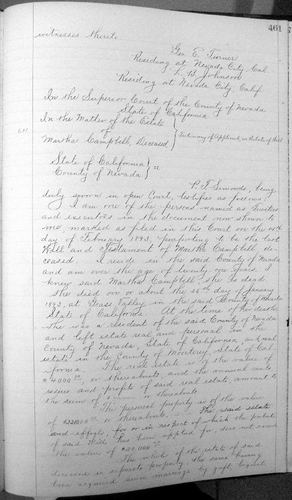 461
witnesses thereto.
Geo. E. Turner
Residing at Nevada City, Cal
L. B. Johnson
Residing at Nevada City, Calif
In the Superior Court of the County of Nevada
State of California
In the Matter of the Estate
of
Martha Campbell, Deceased
Testimony of Applicant, in
State of California
County of Nevada } ss
P. T. Simonds, being
duly sworn in open Court, testifies as follows:
I am one of the persons named as
and executors in the document now shown to
me, marked as filed in this Court on the
day of February 1893, purporting to be the last
Will and Testament of Martha Campbell, de-
ceased. I reside in the said County of Nevada
and am over the age of twenty one years. I
knew said Martha Campbell, she is dead.
She died on or about the day of January
1893, at Grass Valley, in the said County of Nevada
State of California. At the time of her death
she was a resident of the said County of Nevada
and left estate real and personal in the
County of Nevada, State of California, and real
estate in the County of Monterey, State of Cal-
ifornia. The real estate is of the value of
$4000.00 or thereabouts and the annual rents
issues and profits of said real estate, amount to
the sum of or thereabouts.
The personal property is of the value
of or thereabouts. The said estate
and effects, for or in respect of which the probate
of said Will has been applied for, does not exceed
the value of
The whole of the estate of said
deceased is separate property, same having
been acquired by gift, bequest